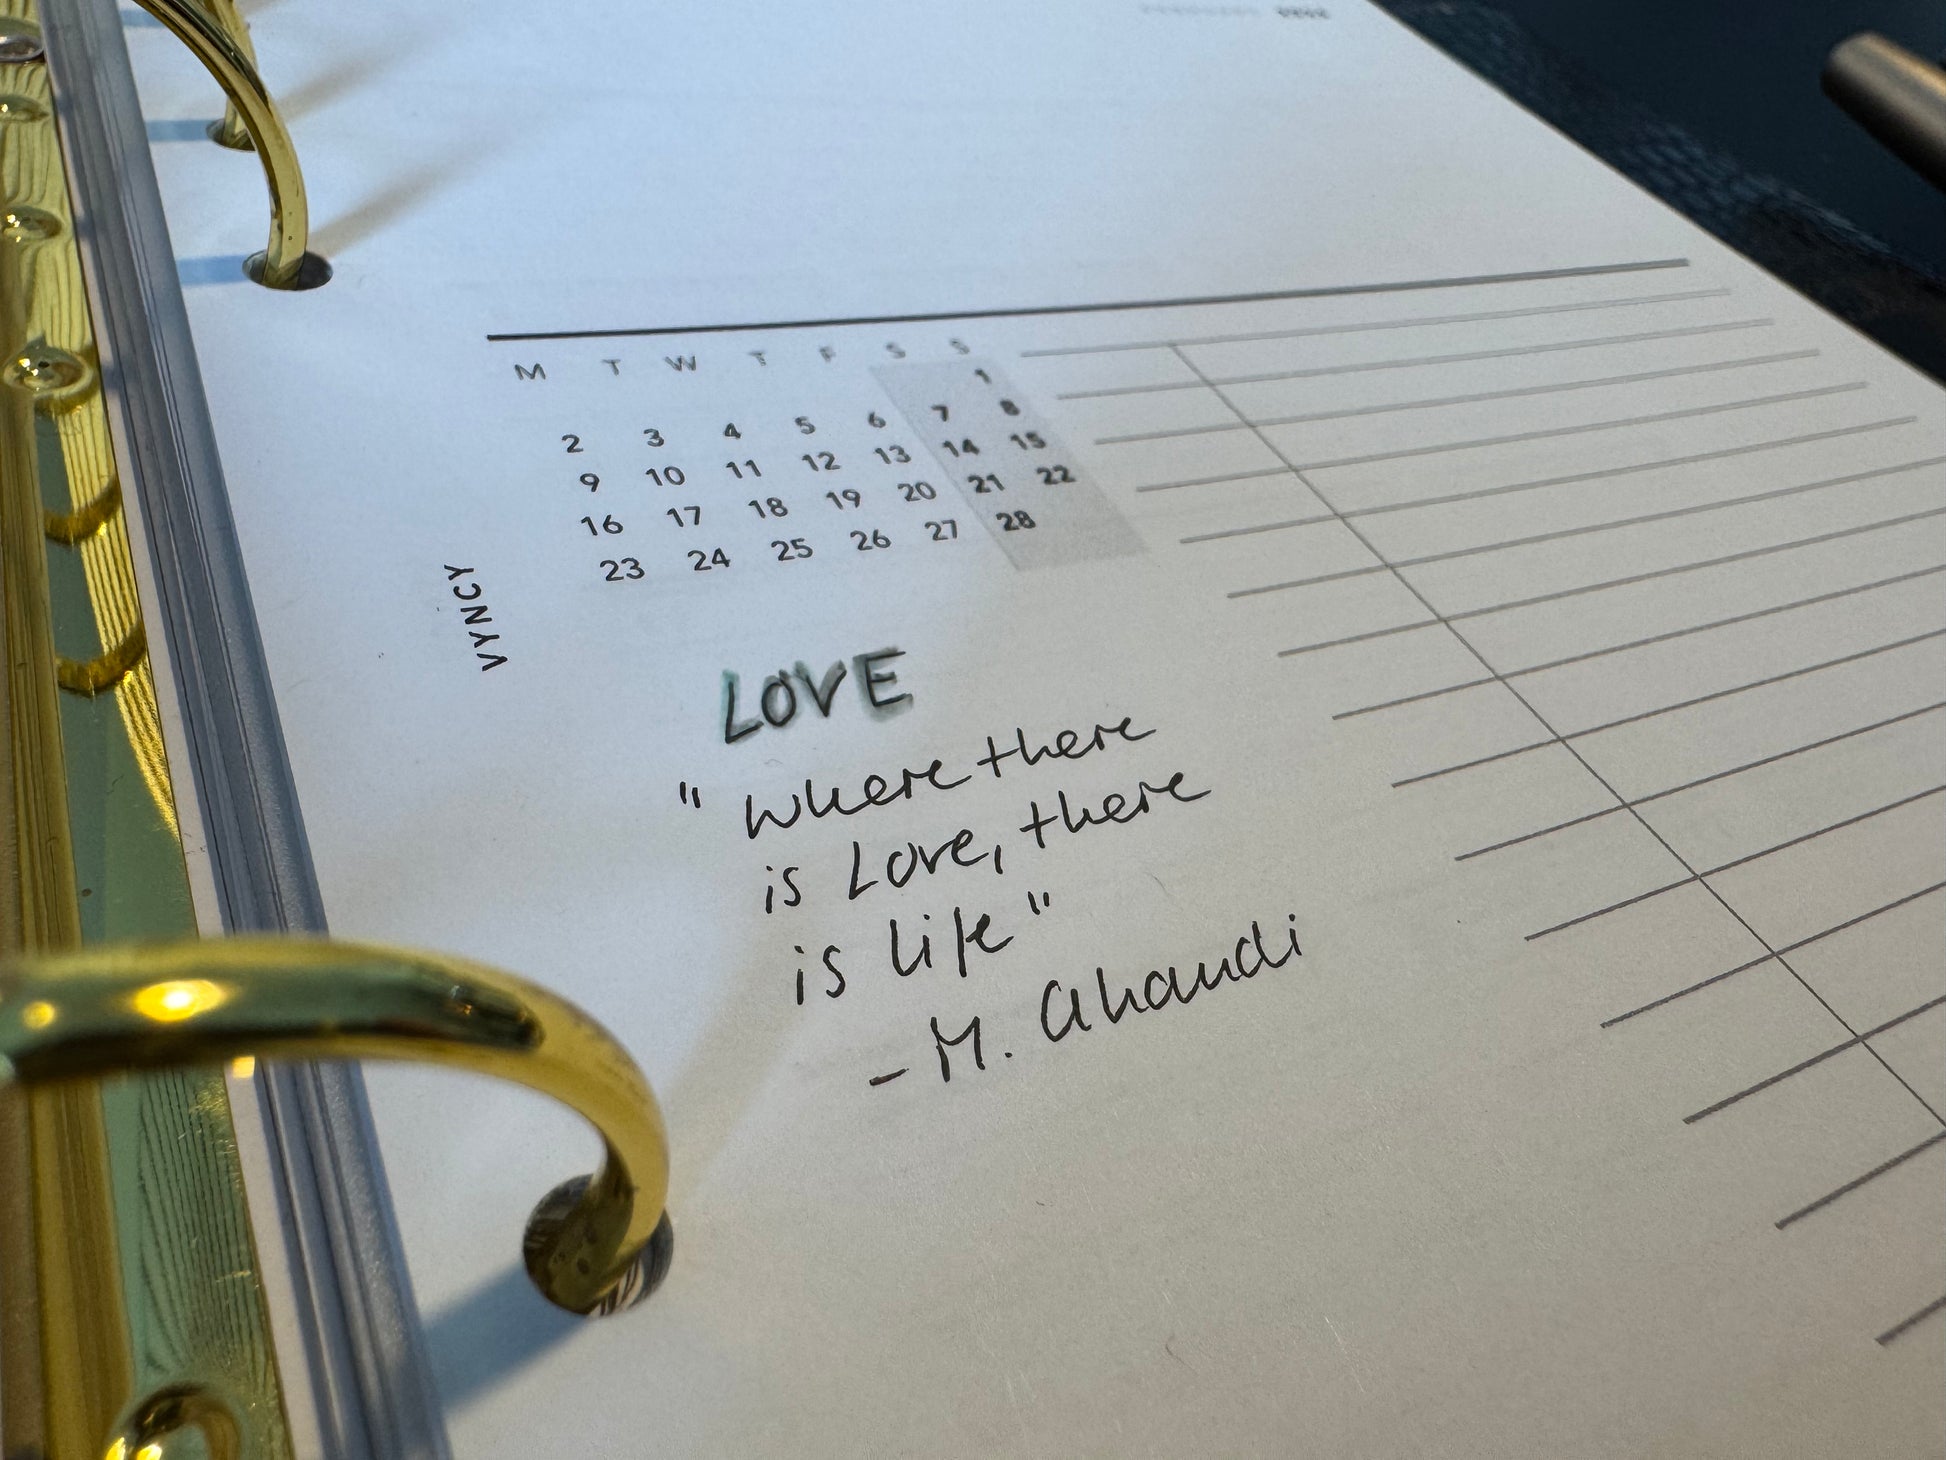 M T W T F S S
1
2 3 4 5 6 7 8
9 10 11 12 13 14 15
16 17 18 19 20 21 22
23 24 25 26 27 28
VYNCY
LOVE
"where there
is Love, there
is life"
- M. Ghandi